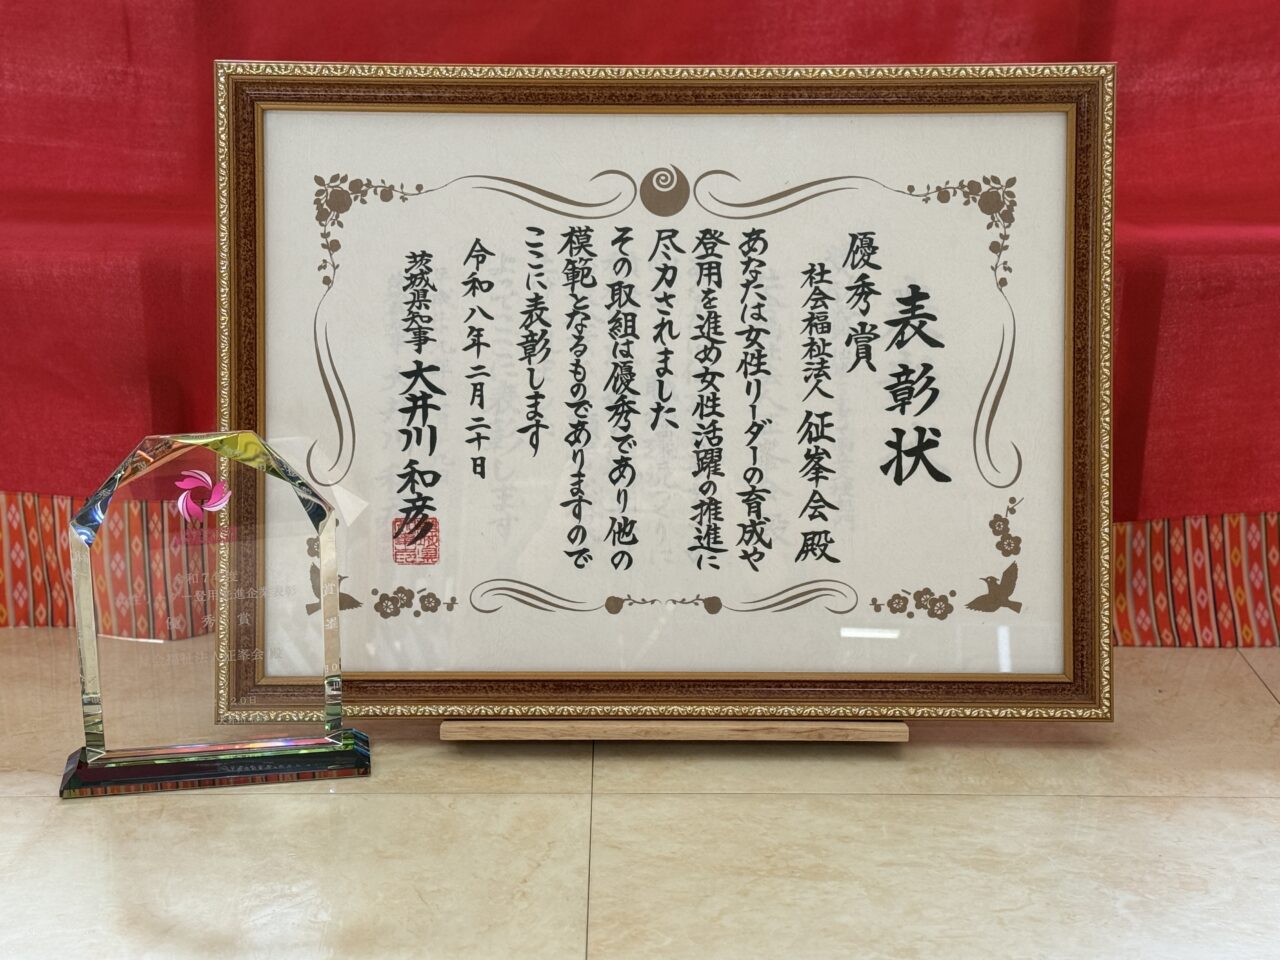 表彰状
優秀賞
社会福祉法人 征峯会 殿
あなたは女性リーダーの育成や
登用を進め女性活躍の推進に
尽力されました
その取組は優秀であり他の
模範となるものでありますので
ここに表彰します
令和八年二月二十日
茨城県知事 大井川 和彦
令和7年度
リーダー登用推進企業表彰
優秀賞
征峯会 殿
20日